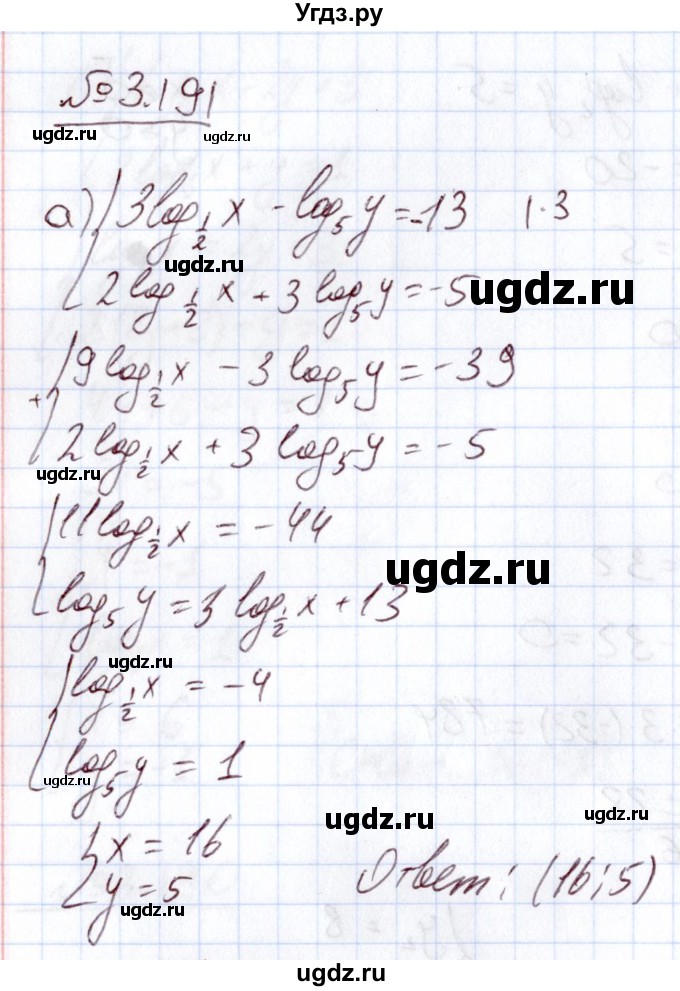 Угдз.ру
№3.191
ugdz.ru ugdz.ru
а) { 3log_{1/2} x - log_5 y = -13 | · 3
ugdz.ru
2log_{1/2} x + 3log_5 y = -5
ugdz.ru
+ { 9log_{1/2} x - 3log_5 y = -39
2log_{1/2} x + 3log_5 y = -5
ugdz.ru
{ 11log_{1/2} x = -44
ugdz.ru
log_5 y = 3log_{1/2} x + 13
ugdz.ru
{ log_{1/2} x = -4
log_5 y = 1
ugdz.ru
ugdz.ru
ugdz.ru
{ x = 16
y = 5
Ответ: (16; 5)
ugdz.ru
ugdz.ru